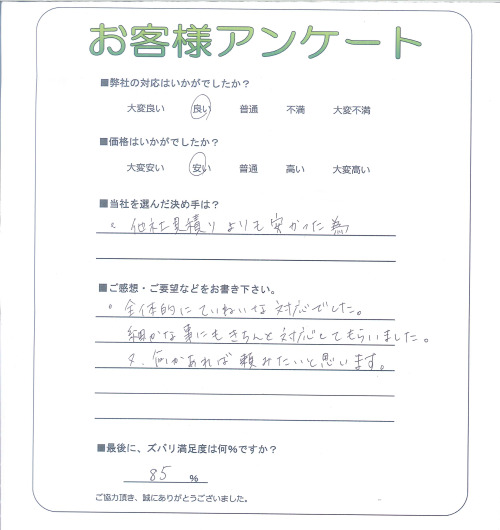 お客様アンケート
■弊社の対応はいかがでしたか？
大変良い 良い 普通 不満 大変不満
■価格はいかがでしたか？
大変安い 安い 普通 高い 大変高い
■当社を選んだ決め手は？
。他社見積りよりも安かった為
■ご感想・ご要望などをお書き下さい。
。全体的にていねいな対応でした。
細かな事にもきちんと対応してもらいました。
又、何かあれば頼みたいと思います。
■最後に、ズバリ満足度は何％ですか？
85 ％
ご協力頂き、誠にありがとうございました。